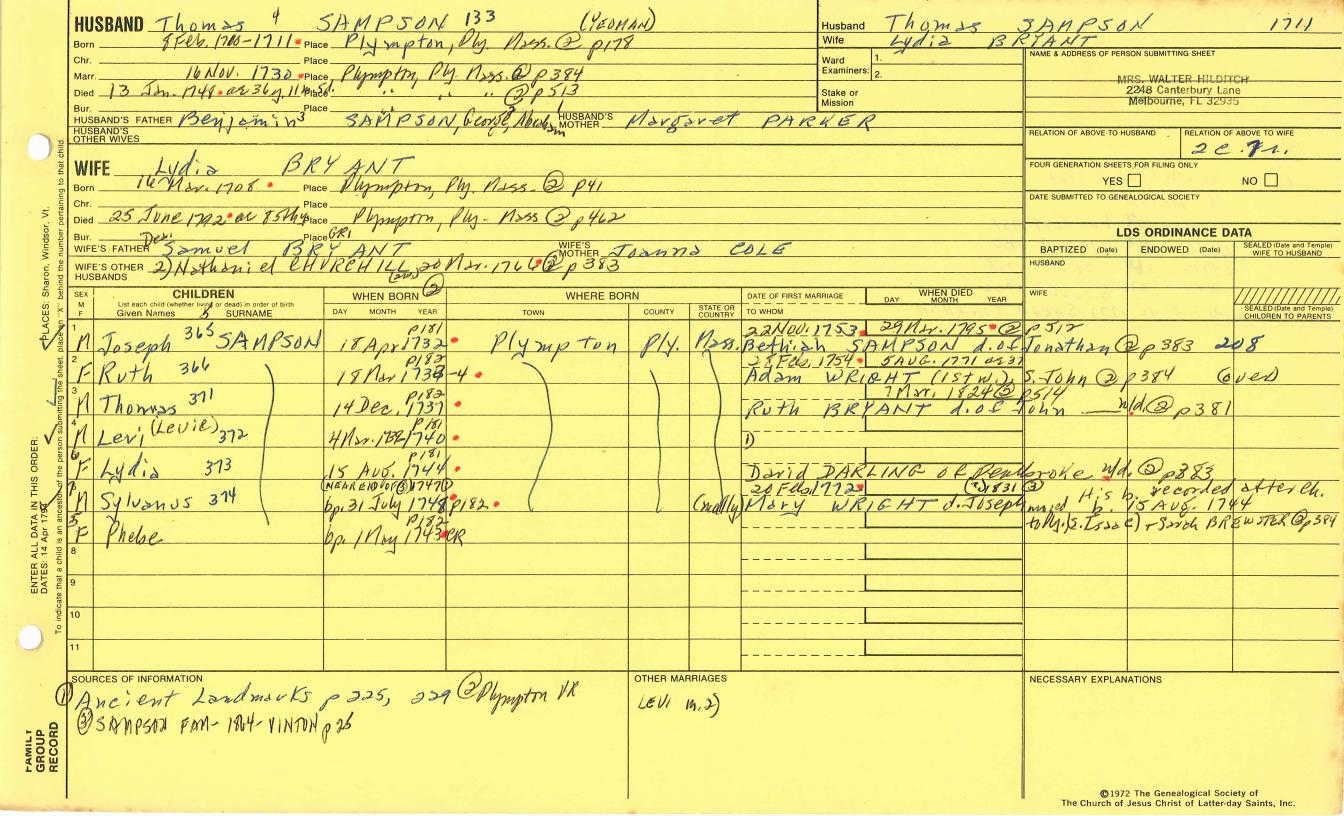 HUSBAND Thomas 4 SAMPSON 133 (YEOMAN)
Born 8 Feb. 1710-1711 Place Plympton, Ply. Mass. ② p178
Chr. Place
Marr. 16 Nov. 1730 Place Plympton, Ply. Mass. ② p384
Died 13 Jan. 1748 Place " " " ② p513
Bur. Place
HUSBAND'S FATHER Benjamin 3 SAMPSON, George 2, HUSBAND'S MOTHER Margaret PARKER
HUSBAND'S OTHER WIVES
Husband Thomas SAMPSON 1711
Wife Lydia BRYANT
Ward Examiners: 1.
2.
Stake or Mission
NAME & ADDRESS OF PERSON SUBMITTING SHEET
MRS. WALTER HILDITCH
2248 Canterbury Lane
Melbourne, FL 32935
RELATION OF ABOVE TO HUSBAND RELATION OF ABOVE TO WIFE
FOUR GENERATION SHEETS FOR FILING ONLY
YES NO
DATE SUBMITTED TO GENEALOGICAL SOCIETY
WIFE Lydia BRYANT
Born 16 Mar. 1708 Place Plympton, Ply. Mass. ② p41
Chr. Place
Died 25 June 1792 Place Plympton, Ply. Mass ② p462
Bur. Place GR1
WIFE'S FATHER Samuel BRYANT WIFE'S MOTHER Joanna COLE
WIFE'S OTHER HUSBANDS 2) Nathaniel CHURCHILL 20 Mar. 1766 ② p383
LDS ORDINANCE DATA
BAPTIZED (Date) ENDOWED (Date) SEALED (Date and Temple) WIFE TO HUSBAND
HUSBAND
WIFE
SEALED (Date and Temple) CHILDREN TO PARENTS
SEX M F CHILDREN List each child (whether living or dead) in order of birth Given Names SURNAME
WHEN BORN ② DAY MONTH YEAR
WHERE BORN TOWN COUNTY STATE OR COUNTRY
DATE OF FIRST MARRIAGE TO WHOM
WHEN DIED DAY MONTH YEAR
1 M Joseph 365 SAMPSON p181 18 Apr 1732 Plympton Ply. Mass. 22 Nov. 1753 29 Mar. 1795 ② p512
Bethiah SAMPSON d. of Jonathan ② p383 208
2 F Ruth 366 p182 18 Mar 1733-4 28 Feb. 1754 5 AUG. 1771
Adam WRIGHT (1st w.) S. John ② p384 (over)
3 M Thomas 371 p182 14 Dec. 1737 7 Mar. 1824 ② p514
Ruth BRYANT d. of John n/d. ② p381
4 M Levi (Levie) 372 p181 4 Mar. 1740 1)
6 F Lydia 373 p181 15 AUG. 1744 David DARLING of Pembroke n/d. ② p383
7 M Sylvanus 374 bp. 31 July 1748 p182 20 Feb. 1772 1831 ③
Mary WRIGHT d. Joseph
His b. recorded after ch.
b. 15 AUG. 1744
(S. Isaac) + Sarah BREWSTER ② p384
5 F Phebe p182 bp. 1 May 1743 CR
8
9
10
11
SOURCES OF INFORMATION
① Ancient Landmarks p 225, 229 ② Plympton VR
③ SAMPSON FAM - 1864 - VINTON p 25
OTHER MARRIAGES
LEVI m. 2)
NECESSARY EXPLANATIONS
©1972 The Genealogical Society of
The Church of Jesus Christ of Latter-day Saints, Inc.
PLACES: Sharon, Windsor, Vt.
ENTER ALL DATA IN THIS ORDER:
DATES: 14 Apr 1794
FAMILY GROUP RECORD